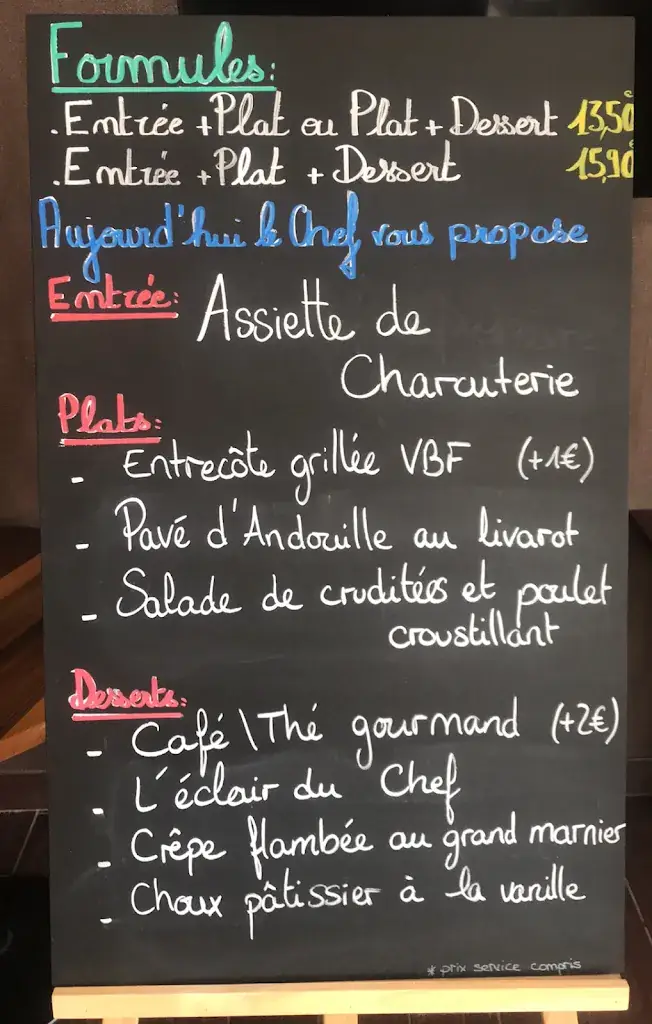 Formules:
.Entrée + Plat ou Plat + Dessert 13,50
.Entrée + Plat + Dessert 15,90
Aujourd'hui le Chef vous propose
Entrée: Assiette de
Charcuterie
Plats:
- Entrecôte grillée VBF (+1€)
- Pavé d'Andouille au livarot
- Salade de crudités et poulet
croustillant
Desserts:
- Café \ Thé gourmand (+2€)
- L'éclair du Chef
- Crêpe flambée au grand marnier
- Choux pâtissier à la vanille
* prix service compris